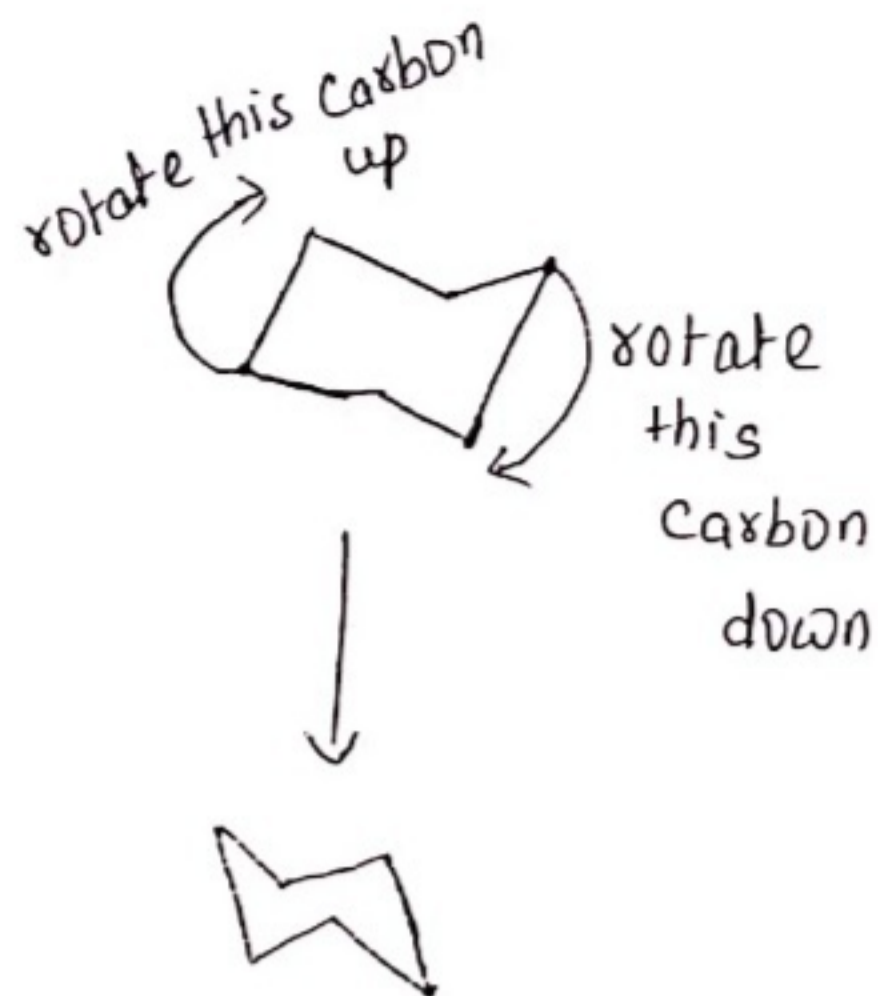 rotate this carbon
up
rotate
this
Carbon
down